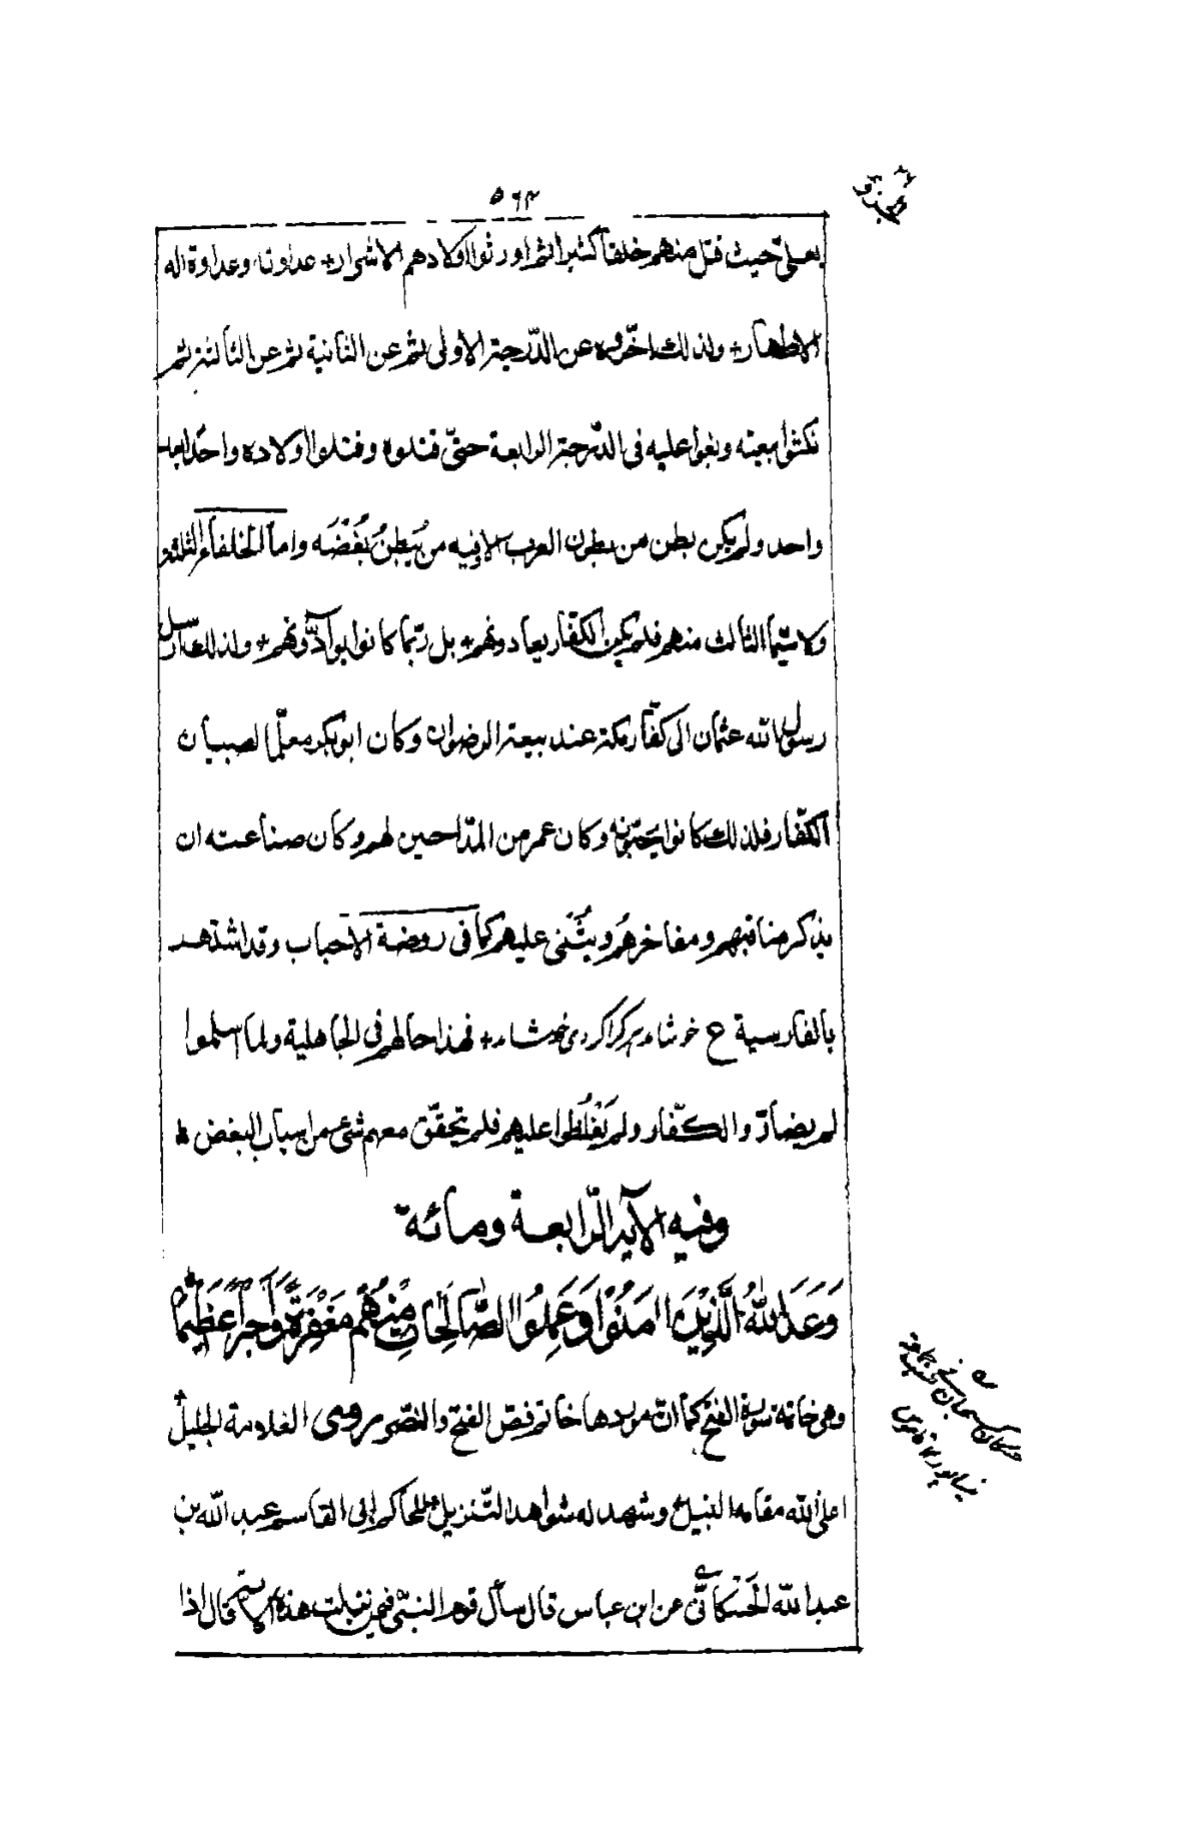 ٥٦٣
الجزؤ ٢٦
بعلىّ حيث قتل منهم خلقاً كثيرا ثم اورثوا اولادهم الاشرار+ عداوته وعداوة اله
الاطهار+ ولذلك اخّروه عن الدّرجة الأولى ثم عن الثانية ثم عن الثالثة ثم
نكثوا بيعته وبغوا عليه فى الدّرجة الرابعة حتّى قتلوه وقتلوا اولاده واحدًا بعد
واحد ولم يكن بطن من بطون العرب الا وفيه من يُبطِنُ بُغْضَه واما الخلفاء الثلثة
ولا سيّما الثالث منهم فلم يكن الكفّار يعادونهم+ بل ربّما كانوا يوادّونهم+ ولذلك ارسل
رسول الله عثمان الى كفّار مكة عند بيعة الرضوان وكان ابوبكر معلّما لصبيان
الكفّار فلذلك كانوا يحبّونه وكان عمر من المدّاحين لهم وكان صناعته ان
يذكر مناقبهم ومفاخرهُم ويُثْنى عليهم كما فى روضة الاحباب وقد اشتهد
بالفارسية ع خوشامد هركرا كردى خوش امد+ فهذا حالهم فى الجاهلية ولما اسلموا
لم يضارّوا الكفّار ولم يَغْلُظوا عليهم فلم يتحقّق معهم شئ من اسباب البغض
وفيه الآية الرّابعة ومائة
وَعَدَ اللّٰهُ الَّذِيْنَ اٰمَنُوْا وَعَمِلُوا الصّٰالِحَاتِ مِنْهُمْ مَغْفِرَةً وَأَجْراً عَظِيْمًا
وهى خاتمة سورة الفتح كما انّ موردها خاتم فصّ الفتح والنصر روى العلامة الجليل
اعلى الله مقامه النبيل وشهد له شواهد التّنزيل للحاكم ابى القاسم عبد الله بن
عبد الله الحَسْكانىّ عن ابن عباس قال سأل قوم النبىّ فيمن نزلت هذه الاية قال اذا